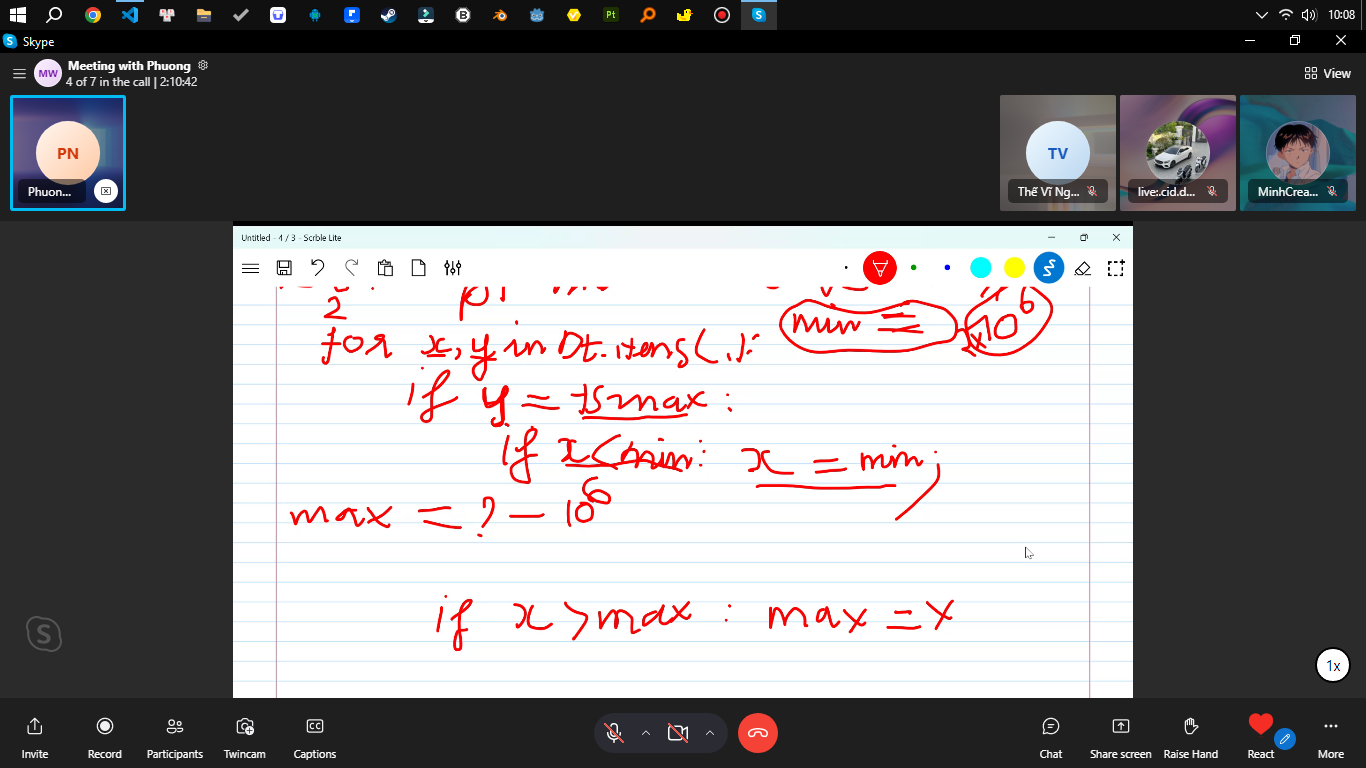 10:08
Skype
MW
Meeting with Phuong
4 of 7 in the call | 2:10:42
View
PN
Phuon...
TV
Thế Vĩ Ng...
live:.cid.d...
MinhCrea...
Untitled - 4 / 3 - Scrble Lite
2
min = 10⁶
for x, y in Dt.items(.):
if y = tsmax :
if x < min: x = min;
max = ? - 10⁶
if x > max : max = x
1x
Invite
Record
Participants
Twincam
Captions
Chat
Share screen
Raise Hand
React
More